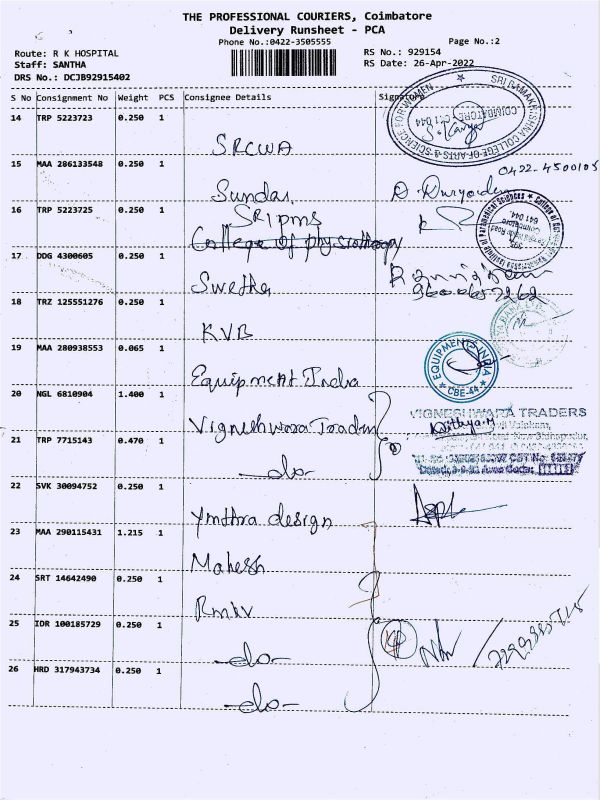 THE PROFESSIONAL COURIERS, Coimbatore
Delivery Runsheet - PCA
Phone No.:0422-3505555
Page No.:2
Route: R K HOSPITAL
RS No.: 929154
Staff: SANTHA
RS Date: 26-Apr-2022
DRS No.: DCJB92915402
S No Consignment No Weight PCS Consignee Details Signature
14 TRP 5223723 0.250 1 SRCWA
SRI RAMAKRISHNA COLLEGE OF ARTS & SCIENCE FOR WOMEN
COIMBATORE 641 044
15 MAA 286133548 0.250 1 Sundar
16 TRP 5223725 0.250 1 SRIPMS
College of physiotherapy
641 044
17 DDG 4300605 0.250 1 Swetha
18 TRZ 125551276 0.250 1 KVB
19 MAA 280938553 0.065 1 Equipment India
EQUIPMENTS INDIA
CBE-44
20 NGL 6810904 1.400 1 Vigneshwara Traders
VIGNESHWARA TRADERS
Nithya
21 TRP 7715143 0.470 1 -do-
22 SVK 30094752 0.250 1 Ymthra design
23 MAA 290115431 1.215 1 Mahesh
24 SRT 14642490 0.250 1 Rmkv
25 IDR 100185729 0.250 1 -do-
26 HRD 317943734 0.250 1 -do-